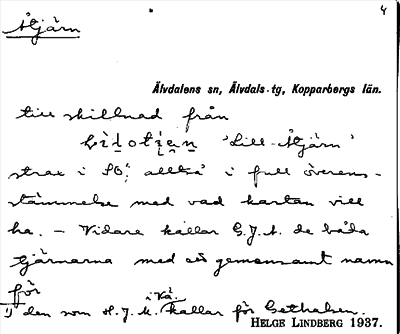 4
Åtjärn
Älvdalens sn, Älvdals-tg, Kopparbergs län.
till skillnad från
"Lill-Åtjärn"
strax i SO, alltså i full överens-
stämmelse med vad kartan vill
ha. – Vidare kallar G.J.A. de båda
tjärnarna med ett gemensamt namn
för
1) den som H.J.M. i Vå. kallar för Getholsen.
HELGE LINDBERG 1937.